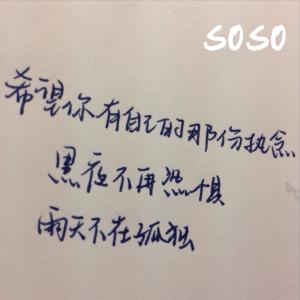 SOSO
希望你有自己的那份执念
黑夜不再惧惧
雨天不在孤独